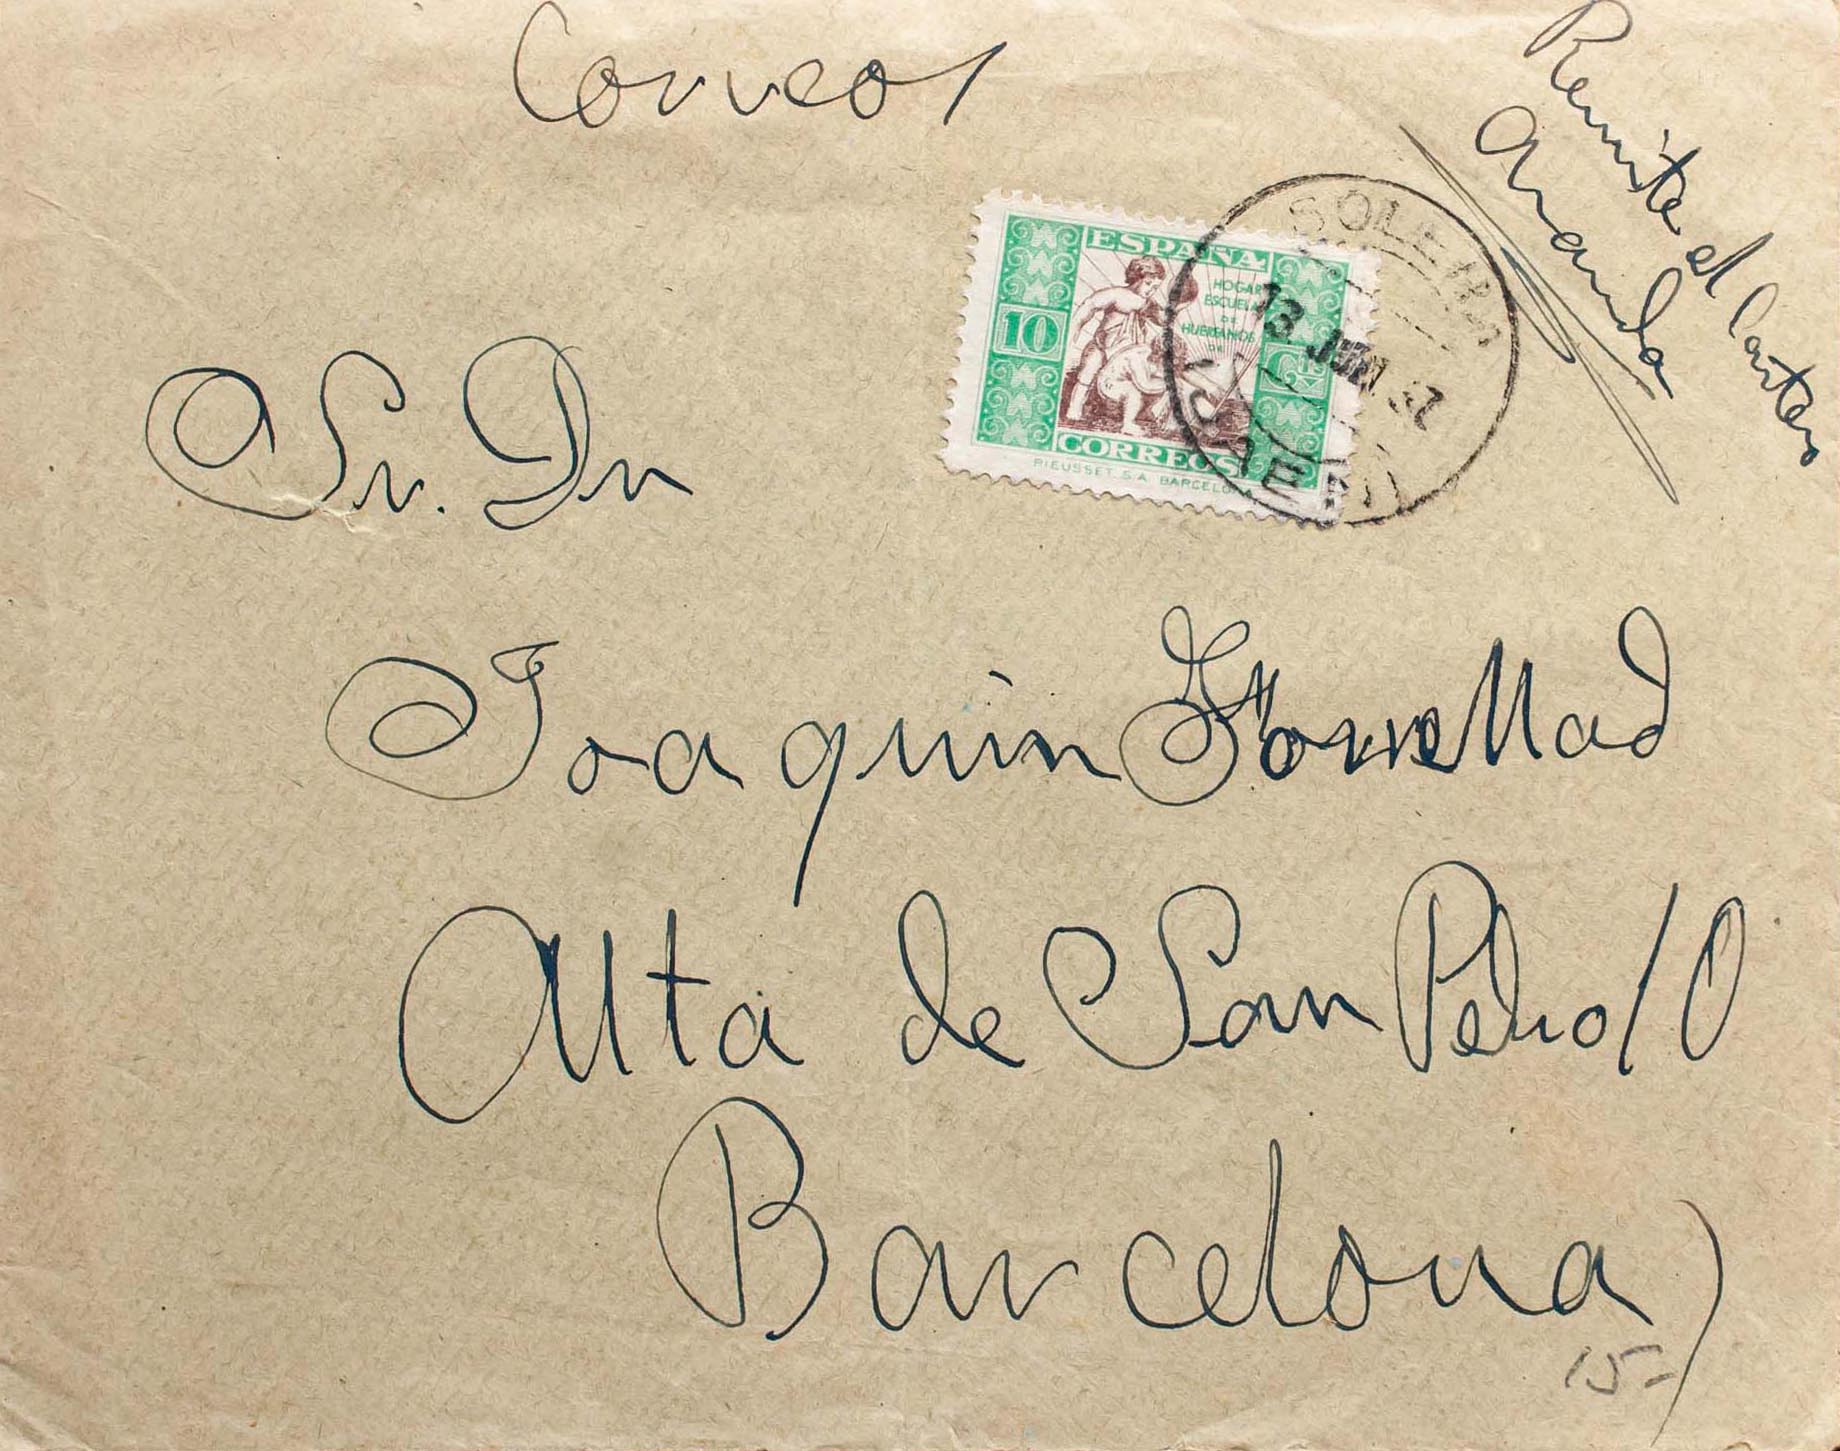 Correos
Remite el Cartero
Aranda
ESPAÑA
HOGAR
ESCUELA
DE
HUERFANOS
DE
10
Cts
CORREOS
RIEUSSET S.A. BARCELONA
13 JUN 37
Sr. Dn
Joaquin TorreMad
Alta de San Pedro 10
Barcelona
15-